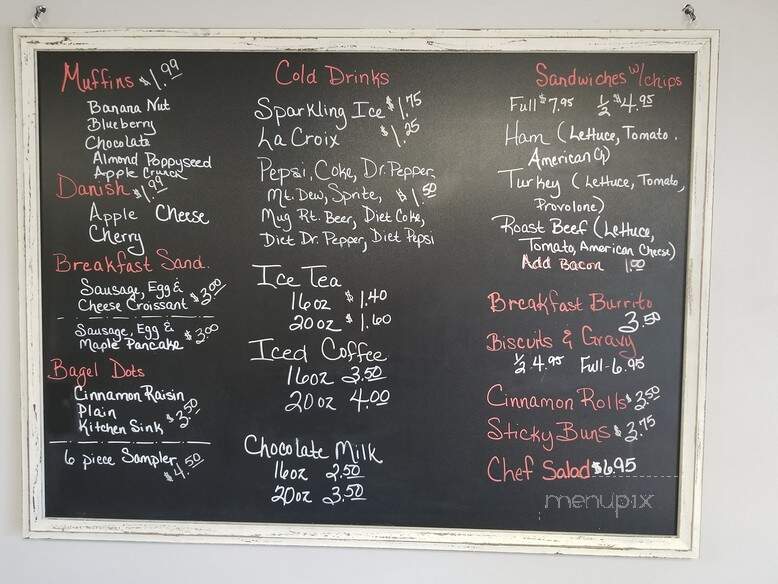 Muffins $1.99
Banana Nut
Blueberry
Chocolate
Almond Poppyseed
Apple Crunch
Danish $1.99
Apple Cheese
Cherry
Breakfast Sand.
Sausage, Egg &
Cheese Croissant $3.00
Sausage, Egg &
Maple Pancake $3.00
Bagel Dots
Cinnamon Raisin
Plain
Kitchen Sink $3.50
6 piece Sampler
$4.50
Cold Drinks
Sparkling Ice $1.75
La Croix $1.25
Pepsi, Coke, Dr. Pepper,
Mt. Dew, Sprite, $1.50
Mug Rt. Beer, Diet Coke,
Diet Dr. Pepper, Diet Pepsi
Ice Tea
16oz $1.40
20oz $1.60
Iced Coffee
16oz 3.50
20oz 4.00
Chocolate Milk
16oz 2.50
20oz 3.50
Sandwiches w/chips
Full $7.95 1/2 $4.95
Ham (Lettuce, Tomato,
American Ch)
Turkey (Lettuce, Tomato,
Provolone)
Roast Beef (Lettuce,
Tomato, American Cheese)
Add Bacon 1.00
Breakfast Burrito
3.50
Biscuits & Gravy
1/2 4.95 Full-6.95
Cinnamon Rolls $3.50
Sticky Buns $3.75
Chef Salad $6.95
menupix